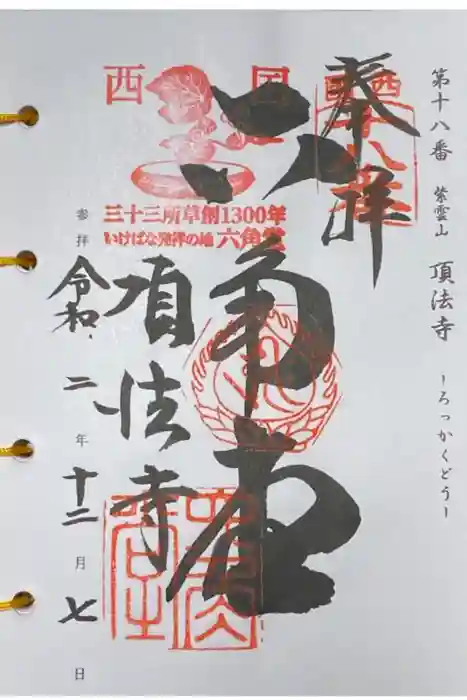 第十八番 紫雲山 頂法寺 ーろっかくどうー
奉拝
西国
三十三所草創1300年
いけばな発祥の地 六角堂
六角堂
頂法寺
参拝 令和二年十二月七日